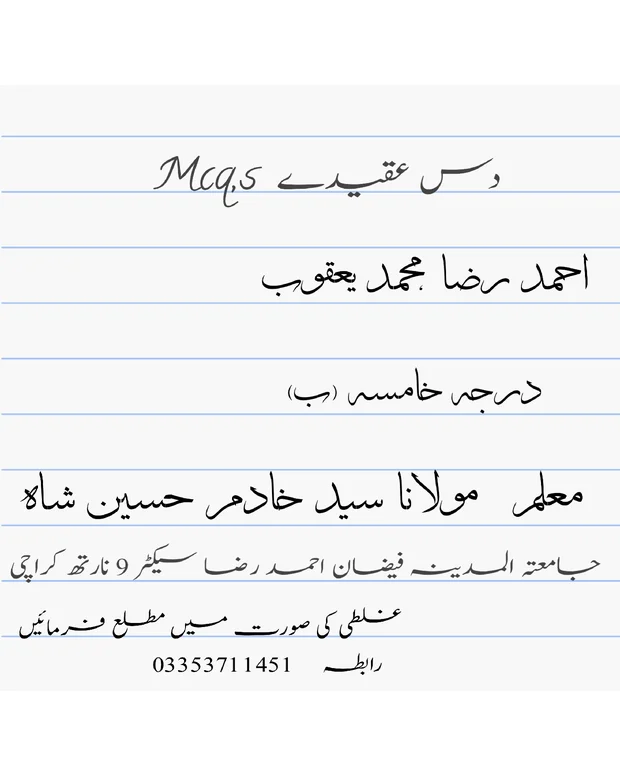 دس عقیدے Mcq,s
احمد رضا محمد یعقوب
درجہ خامسہ (ب)
معلم مولانا سید خادم حسین شاہ
جامعتہ المدینہ فیضان احمد رضا سیکٹر 9 نارتھ کراچی
غلطی کی صورت میں مطلع فرمائیں
رابطہ 03353711451